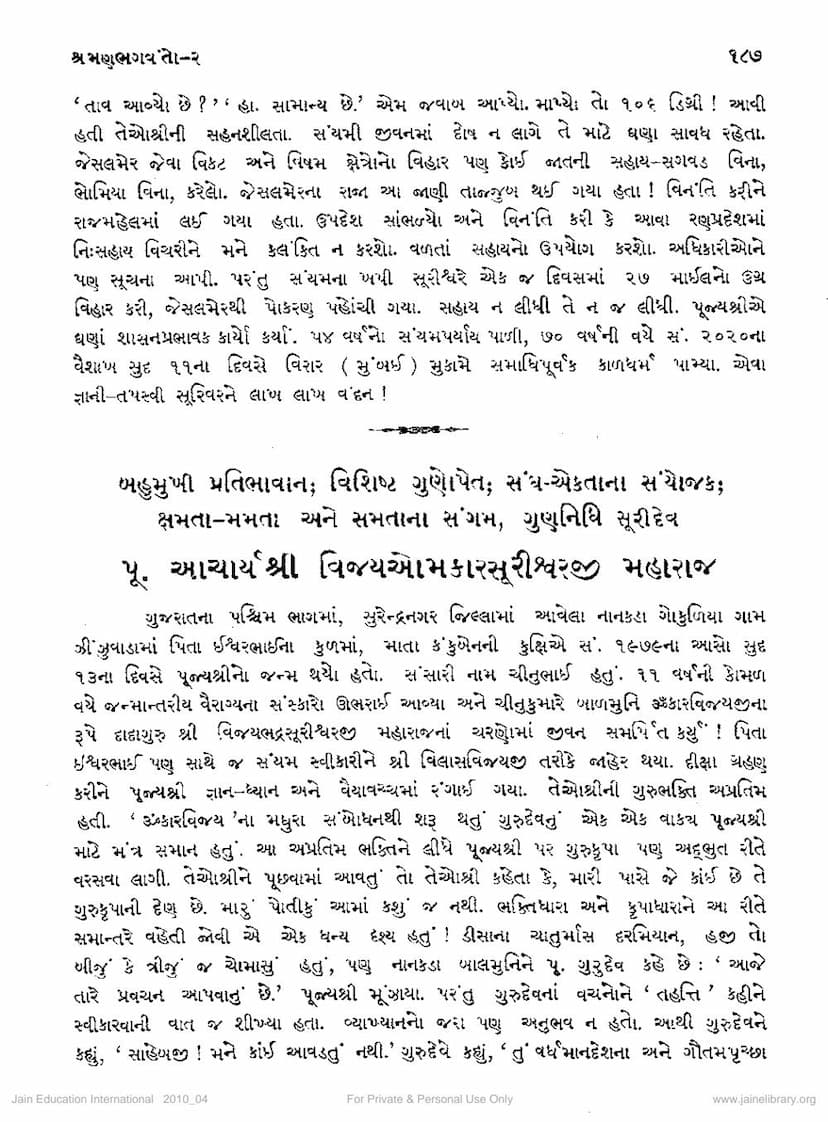 શ્રમણભગવંતો-૨ ૧૮૭
‘તાવ આવ્યો છે?’ ‘હા. સામાન્ય છે.’ એમ જવાબ આપ્યો. માપ્યો તો ૧૦૬ ડિગ્રી! આવી
હતી તેઓશ્રીની સહનશીલતા. સંયમી જીવનમાં દોષ ન લાગે તે માટે ઘણા સાવધ રહેતા.
જેસલમેર જેવા વિકટ અને વિષમ ક્ષેત્રોનો વિહાર પણ કોઈ જાતની સહાય-સગવડ વિના,
ભોમિયા વિના, કરેલો. જેસલમેરના રાજા આ જાણી તાજ્જુબ થઈ ગયા હતા! વિનંતિ કરીને
રાજમહેલમાં લઈ ગયા હતા. ઉપદેશ સાંભળ્યો અને વિનંતિ કરી કે આવા રણપ્રદેશમાં
નિઃસહાય વિચરીને મને કલંકિત ન કરશો. વળતાં સહાયનો ઉપયોગ કરશો. અધિકારીઓને
પણ સૂચના આપી. પરંતુ સંયમના ખપી સૂરીશ્વરે એક જ દિવસમાં ૨૭ માઈલનો ઉગ્ર
વિહાર કરી, જેસલમેરથી પોકરણ પહોંચી ગયા. સહાય ન લીધી તે ન જ લીધી. પૂજ્યશ્રીએ
ઘણાં શાસનપ્રભાવક કાર્યો કર્યાં. ૫૪ વર્ષનો સંયમપર્યાય પાળી, ૭૦ વર્ષની વયે સં. ૨૦૨૦ના
વૈશાખ સુદ ૧૧ના દિવસે વિરાર (મુંબઈ) મુકામે સમાધિપૂર્વક કાળધર્મ પામ્યા. એવા
જ્ઞાની-તપસ્વી સૂરિવરને લાખ લાખ વંદન!
બહુમુખી પ્રતિભાવાન; વિશિષ્ટ ગુણોપેત; સંઘ-એકતાના સંયોજક;
ક્ષમતા-મમતા અને સમતાના સંગમ, ગુણનિધિ સૂરીદેવ
પૂ. આચાર્યશ્રી વિજયઓમકારસૂરીશ્વરજી મહારાજ
ગુજરાતના પશ્ચિમ ભાગમાં, સુરેન્દ્રનગર જિલ્લામાં આવેલા નાનકડા ગોકુળિયા ગામ
ઝીંઝુવાડામાં પિતા ઈશ્વરભાઈના કુળમાં, માતા કંકુબેનની કુક્ષિએ સં. ૧૯૭૯ના આસો સુદ
૧૩ના દિવસે પૂજ્યશ્રીનો જન્મ થયો હતો. સંસારી નામ ચીનુભાઈ હતું. ૧૧ વર્ષની કોમળ
વયે જન્માન્તરીય વૈરાગ્યના સંસ્કારો ઊભરાઈ આવ્યા અને ચીનુકુમારે બાળમુનિ ૐકારવિજયજીના
રૂપે દાદાગુરુ શ્રી વિજયભદ્રસૂરીશ્વરજી મહારાજનાં ચરણોમાં જીવન સમર્પિત કર્યું! પિતા
ઈશ્વરભાઈ પણ સાથે જ સંયમ સ્વીકારીને શ્રી વિલાસવિજયજી તરીકે જાહેર થયા. દીક્ષા ગ્રહણ
કરીને પૂજ્યશ્રી જ્ઞાન-ધ્યાન અને વૈયાવચ્ચમાં રંગાઈ ગયા. તેઓશ્રીની ગુરુભક્તિ અપ્રતિમ
હતી. ‘ૐકારવિજય’ના મધુરા સંબોધનથી શરૂ થતું ગુરુદેવનું એક એક વાક્ય પૂજ્યશ્રી
માટે મંત્ર સમાન હતું. આ અપ્રતિમ ભક્તિને લીધે પૂજ્યશ્રી પર ગુરુકૃપા પણ અદ્ભુત રીતે
વરસવા લાગી. તેઓશ્રીને પૂછવામાં આવતું તો તેઓશ્રી કહેતા કે, મારી પાસે જે કાંઈ છે તે
ગુરુકૃપાની દેણ છે. મારું પોતીકું આમાં કશું જ નથી. ભક્તિધારા અને કૃપાધારાને આ રીતે
સમાન્તરે વહેતી જોવી એ એક ધન્ય દૃશ્ય હતું! ડીસાના ચાતુર્માસ દરમિયાન, હજી તો
બીજું કે ત્રીજું જ ચોમાસું હતું, પણ નાનકડા બાલમુનિને પૂ. ગુરુદેવ કહે છે: ‘આજે
તારે પ્રવચન આપવાનું છે.’ પૂજ્યશ્રી મૂંઝાયા. પરંતુ ગુરુદેવનાં વચનોને ‘તહત્તિ’ કહીને
સ્વીકારવાની વાત જ શીખ્યા હતા. વ્યાખ્યાનનો જરા પણ અનુભવ ન હતો. આથી ગુરુદેવને
કહ્યું, ‘સાહેબજી! મને કાંઈ આવડતું નથી.’ ગુરુદેવે કહ્યું, ‘તું વર્ધમાનદેશના અને ગૌતમપૃચ્છા
Jain Education International 2010_04 For Private & Personal Use Only www.jainelibrary.org